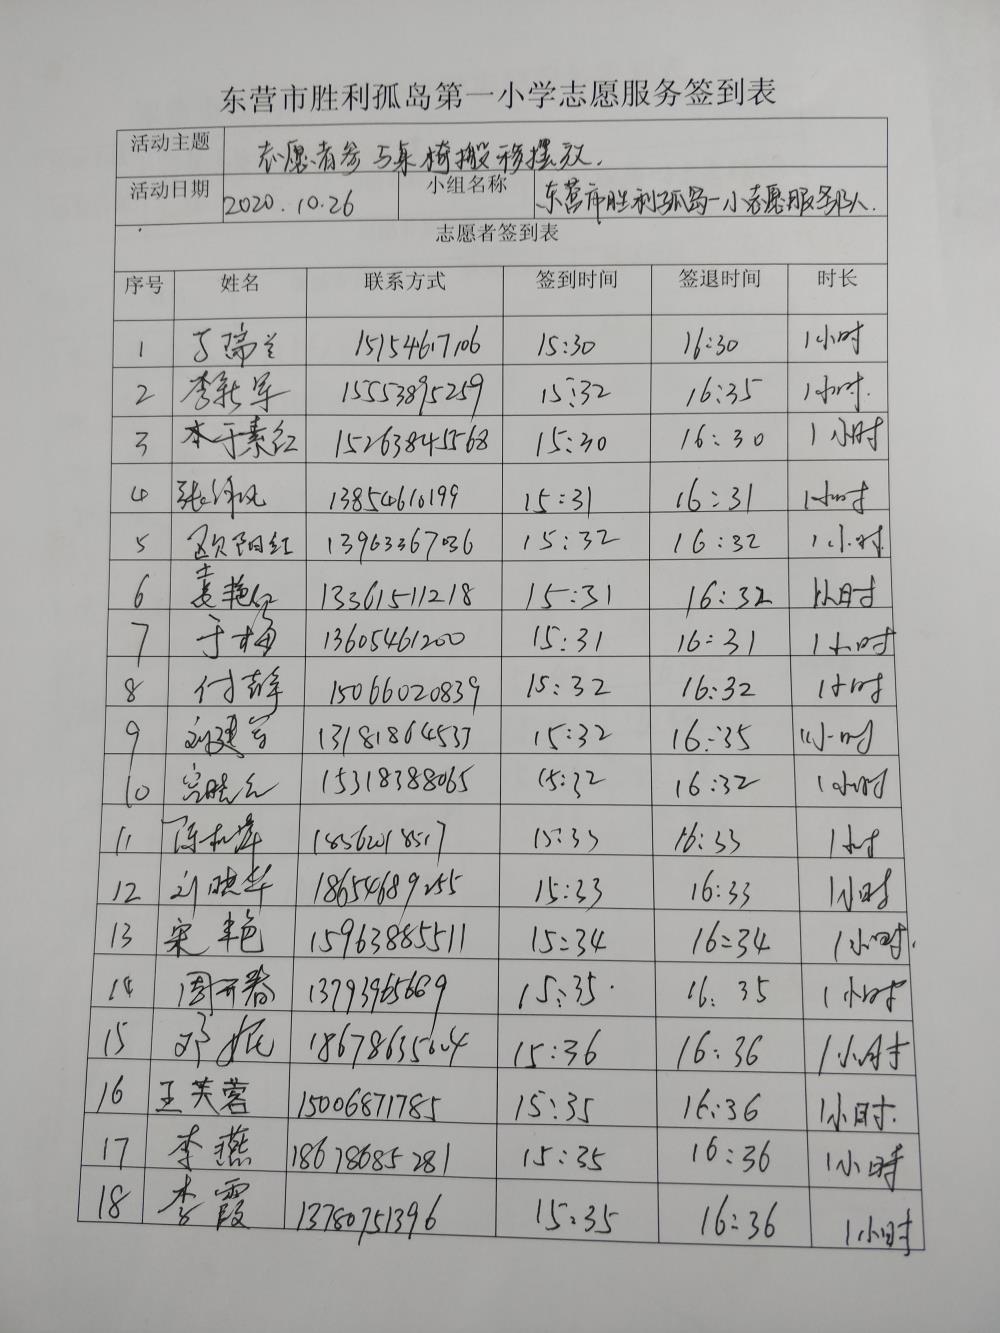 东营市胜利孤岛第一小学志愿服务签到表
活动主题 志愿者参与桌椅搬移摆放.
活动日期 2020.10.26 小组名称 东营市胜利孤岛一小志愿服务队.
志愿者签到表
序号 姓名 联系方式 签到时间 签退时间 时长
1 15154617106 15:30 16:30 1小时
2 李新军 15553895259 15:32 16:35 1小时.
3 于素红 15263845568 15:30 16:30 1小时
4 13854610199 15:31 16:31 1小时
5 欧阳红 13963367036 15:32 16:32 1小时.
6 袁艳红 13361511218 15:31 16:32 1小时
7 于梅 13605461200 15:31 16:31 1小时
8 15066020839 15:32 16:32 1小时
9 刘建军 13181864537 15:32 16:35 1小时
10 15318388065 15:32 16:32 1小时
11 18562018517 15:33 16:33 1小时
12 刘晓华 18654689255 15:33 16:33 1小时
13 宋艳 15963885511 15:34 16:34 1小时.
14 周开春 13793965669 15:35. 16:35 1小时
15 邓妮 18678635604 15:36 16:36 1小时
16 王芙蓉 15006871785 15:35 16:36 1小时.
17 李燕 18678685281 15:35 16:36 1小时
18 李霞 13780751396 15:35 16:36 1小时